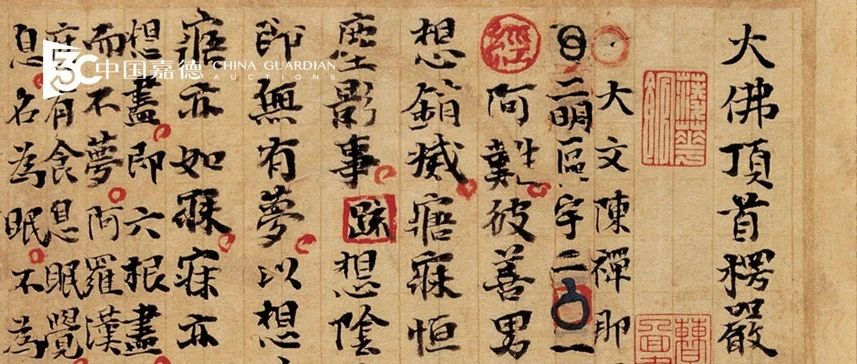 大佛頂首楞嚴
大文陳禪那
二明區宇二
經阿難彼善男
想銷滅寤寐恒
塵影事疏想陰
即無有夢以想
寤亦如寐寐亦
想盡即六根盡
而不夢阿羅漢
有食息眠覺
息名為眠不為
中国嘉德
CHINA GUARDIAN
AUCTIONS